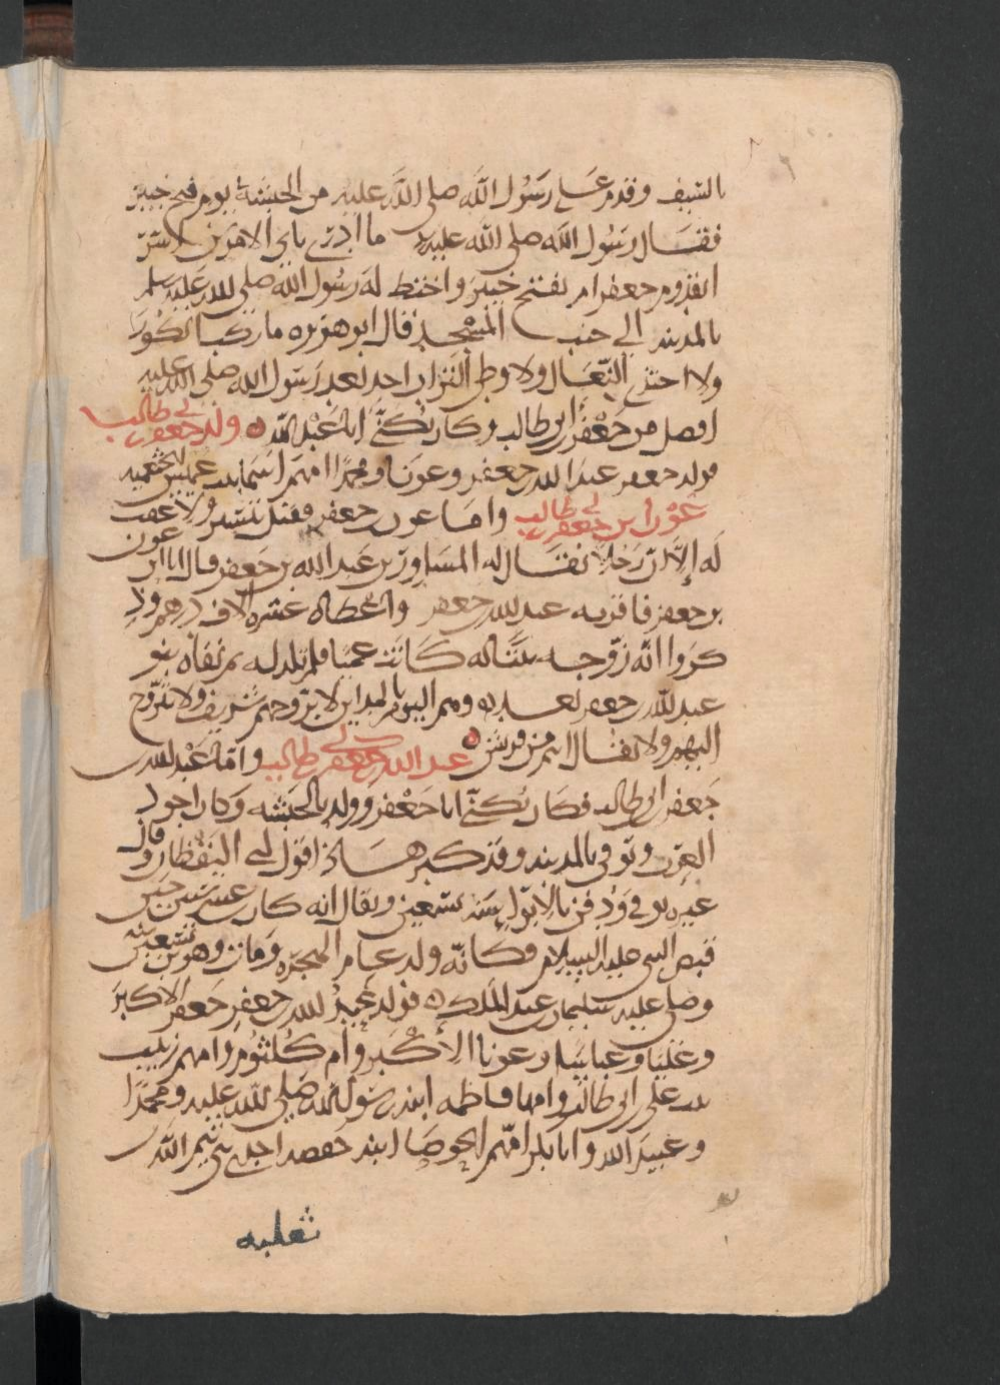 بالسيف وقدم على رسول الله صلى الله عليه من الحبشة يوم فتح خيبر
فقال رسول الله صلى الله عليه ما ادري باي الامرين انا اسر
ابقدوم جعفر ام بفتح خيبر واختط له رسول الله صلى الله عليه وسلم
بالمدينه الى جنب المسجد قال ابو هريره ما ركب الكور
ولا احتذى النعال ولا وطى التراب احد بعد رسول الله صلى الله عليه
افضل من جعفر بن ابي طالب وكان يكنى ابا عبد الله ولد جعفر بن ابي طالب
فولد جعفر عبد الله بن جعفر وعونا ومحمدا امهم اسما بنت عميس الخثعميه
عون ابن جعفر بن ابي طالب واما عون بن جعفر فقتل بتستر ولا عقب
له الا ان رجلا يقال له المساور بن عبد الله بن جعفر قال انا ابن عون
بن جعفر فاقر به عبد الله بن جعفر واعطاه عشره الاف درهم وذ
كروا انه زوجه بنتا له كانت عميا فلم تلد له ثم نفاه بنو
عبد الله بن جعفر بعد به وهم اليوم بالمداين لا يزوجهم شريف ولا يتزوج
اليهم ولا يقال انهم من قريش عبد الله بن جعفر بن ابي طالب واما عبد الله بن
جعفر بن ابي طالب فكان يكنى ابا جعفر وولد بالحبشه وكان اجود
العرب وتوفي بالمدينه وقد كبر هذا قول ابي اليقظان وقال
غيره توفي ودفن بالابوا سنه تسعين ويقال انه كان ابن عشر سنين حين
قبض النبي عليه السلام وكانه ولد عام الهجره ومات وهو ابن تسعين سنه
وصلى عليه سليمان بن عبد الملك فولد عبد الله بن جعفر جعفر الاكبر
وعليا وعباسا وعونا الاكبر وام كلثوم وامهم زينب
بنت علي بن ابي طالب وامها فاطمه ابنه رسول الله صلى الله عليه ومحمدا
وعبيد الله وابا بكر امهم الخوصا ابنه خصفه احد بني تيم الله بن
ثعلبه